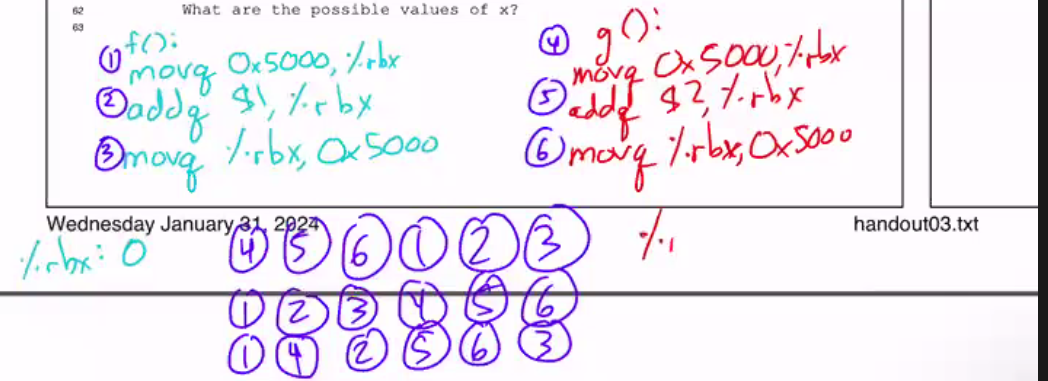 62 What are the possible values of x?
63
f():
① movq 0x5000, %rbx
② addq $1, %rbx
③ movq %rbx, 0x5000
g():
④ movq 0x5000, %rbx
⑤ addq $2, %rbx
⑥ movq %rbx, 0x5000
Wednesday January 31, 2024
handout03.txt
%rbx: 0
④ ⑤ ⑥ ① ② ③
① ② ③ ④ ⑤ ⑥
① ④ ② ⑤ ⑥ ③